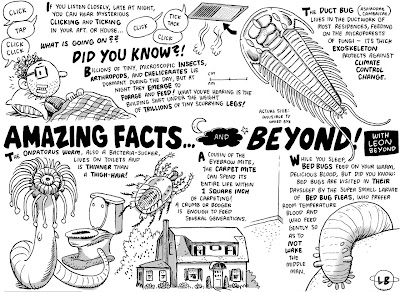 CLICK
TAP
CLICK
CLICK
TICK
TACK
TICK
IF YOU LISTEN CLOSELY, LATE AT NIGHT,
YOU CAN HEAR MYSTERIOUS
CLICKING AND TICKING
IN YOUR APT. OR HOUSE...
WHAT IS GOING ON??
DID YOU KNOW?!
BILLIONS OF TINY, MICROSCOPIC INSECTS,
ARTHROPODS, AND CHELICERATES LIE
DORMANT DURING THE DAY, BUT AT
NIGHT THEY EMERGE TO
FORAGE AND FEED! WHAT YOU'RE HEARING IS THE
BUILDING SHIFT UNDER THE WEIGHT
OF TRILLIONS OF TINY SCURRYING LEGS!
THE DUCT BUG
LIVES IN THE DUCTWORK OF
MOST RESIDENCES, FEEDING
ON THE MICROFORESTS
OF FUNGI - ITS THICK
EXOSKELETON
PROTECTS AGAINST
CLIMATE
CONTROL
CHANGE.
ACTUAL SIZE:
INVISIBLE TO
NAKED EYE
AMAZING FACTS... AND BEYOND!
WITH
LEON
BEYOND
THE ONDATORUS WORM, ALSO A BACTERIA-SUCKER,
LIVES ON TOILETS AND
IS THINNER THAN
A THIGH-HAIR!
A COUSIN OF THE
EYEBROW MITE,
THE CARPET MITE
CAN SPEND ITS
ENTIRE LIFE WITHIN
1 SQUARE INCH
OF CARPETING!
A CRUMB OR BOOGER
IS ENOUGH TO FEED
SEVERAL GENERATIONS.
WHILE YOU SLEEP,
BED BUGS FEED ON YOUR WARM,
DELICIOUS BLOOD, BUT DID YOU KNOW:
BED BUGS ARE VISITED IN THEIR
DAYSLEEP BY THE SUPER SMALL LARVAE
OF BED BUG FLEAS, WHO PREFER
ROOM TEMPERATURE
BLOOD AND
WHO FEED
GENTLY SO
AS TO
NOT WAKE
THE
MIDDLE
MAN.
LB